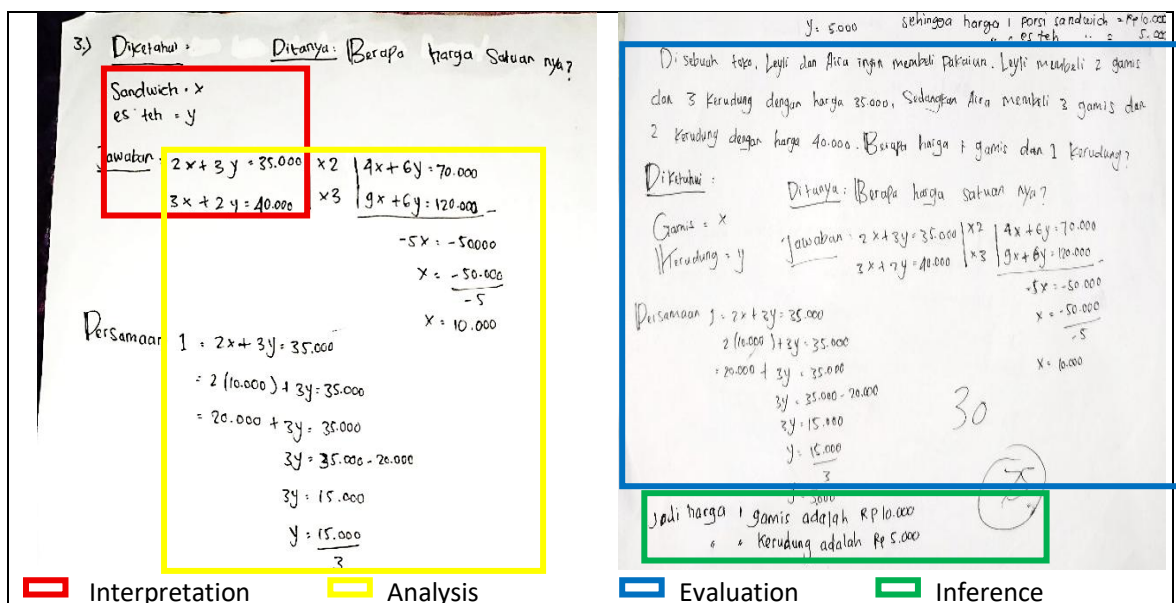 3.) Diketahui : Ditanya : Berapa harga Satuan nya?
Sandwich = x
es teh = y
Jawaban :
2x + 3y = 35.000 x2 4x + 6y = 70.000
3x + 2y = 40.000 x3 9x + 6y = 120.000 -
-5x = -50000
x = -50.000
-5
x = 10.000
Persamaan 1 = 2x + 3y = 35.000
= 2(10.000) + 3y = 35.000
= 20.000 + 3y = 35.000
3y = 35.000 - 20.000
3y = 15.000
y = 15.000
3
y = 5.000 sehingga harga 1 porsi sandwich = Rp 10.000
" " es teh " = 5.000
Di sebuah toko, Leyli dan Aira ingin membeli Pakaian. Leyli membeli 2 gamis
dan 3 Kerudung dengan harga 35.000, Sedangkan Aira membeli 3 gamis dan
2 Kerudung dengan harga 40.000. Berapa harga 1 gamis dan 1 Kerudung?
Diketahui :
Ditanya : Berapa harga satuan nya?
Gamis = x
Kerudung = y
Jawaban : 2x + 3y = 35.000 x2 4x + 6y = 70.000
3x + 2y = 40.000 x3 9x + 6y = 120.000 -
-5x = -50.000
x = -50.000
-5
x = 10.000
Persamaan 1 = 2x + 3y = 35.000
2(10.000) + 3y = 35.000
= 20.000 + 3y = 35.000
3y = 35.000 - 20.000
3y = 15.000
y = 15.000
3
y = 5.000
30
Jadi harga 1 gamis adalah RP 10.000
" " Kerudung adalah Rp 5.000
Interpretation Analysis Evaluation Inference